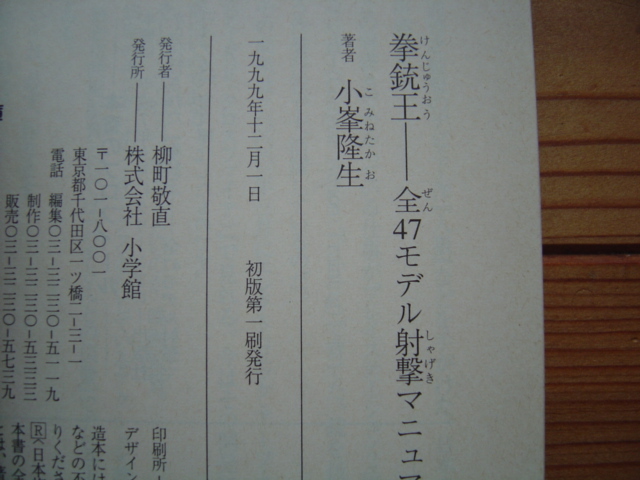 拳銃王──全47モデル射撃マニュア
けんじゅうおう ぜん しゃげき
著者 小峯隆生
こみねたかお
一九九九年十二月一日 初版第一刷発行
発行者──柳町敬直
発行所──株式会社 小学館
〒一〇一-八〇〇一
東京都千代田区一ツ橋二-三-一
電話 編集〇三-三二三〇-五一一九
制作〇三-三二三〇-五三三三
販売〇三-三二三〇-五七三九
印刷所
デザイン
造本には
などの不
りくださ
R〈日本
本書の全